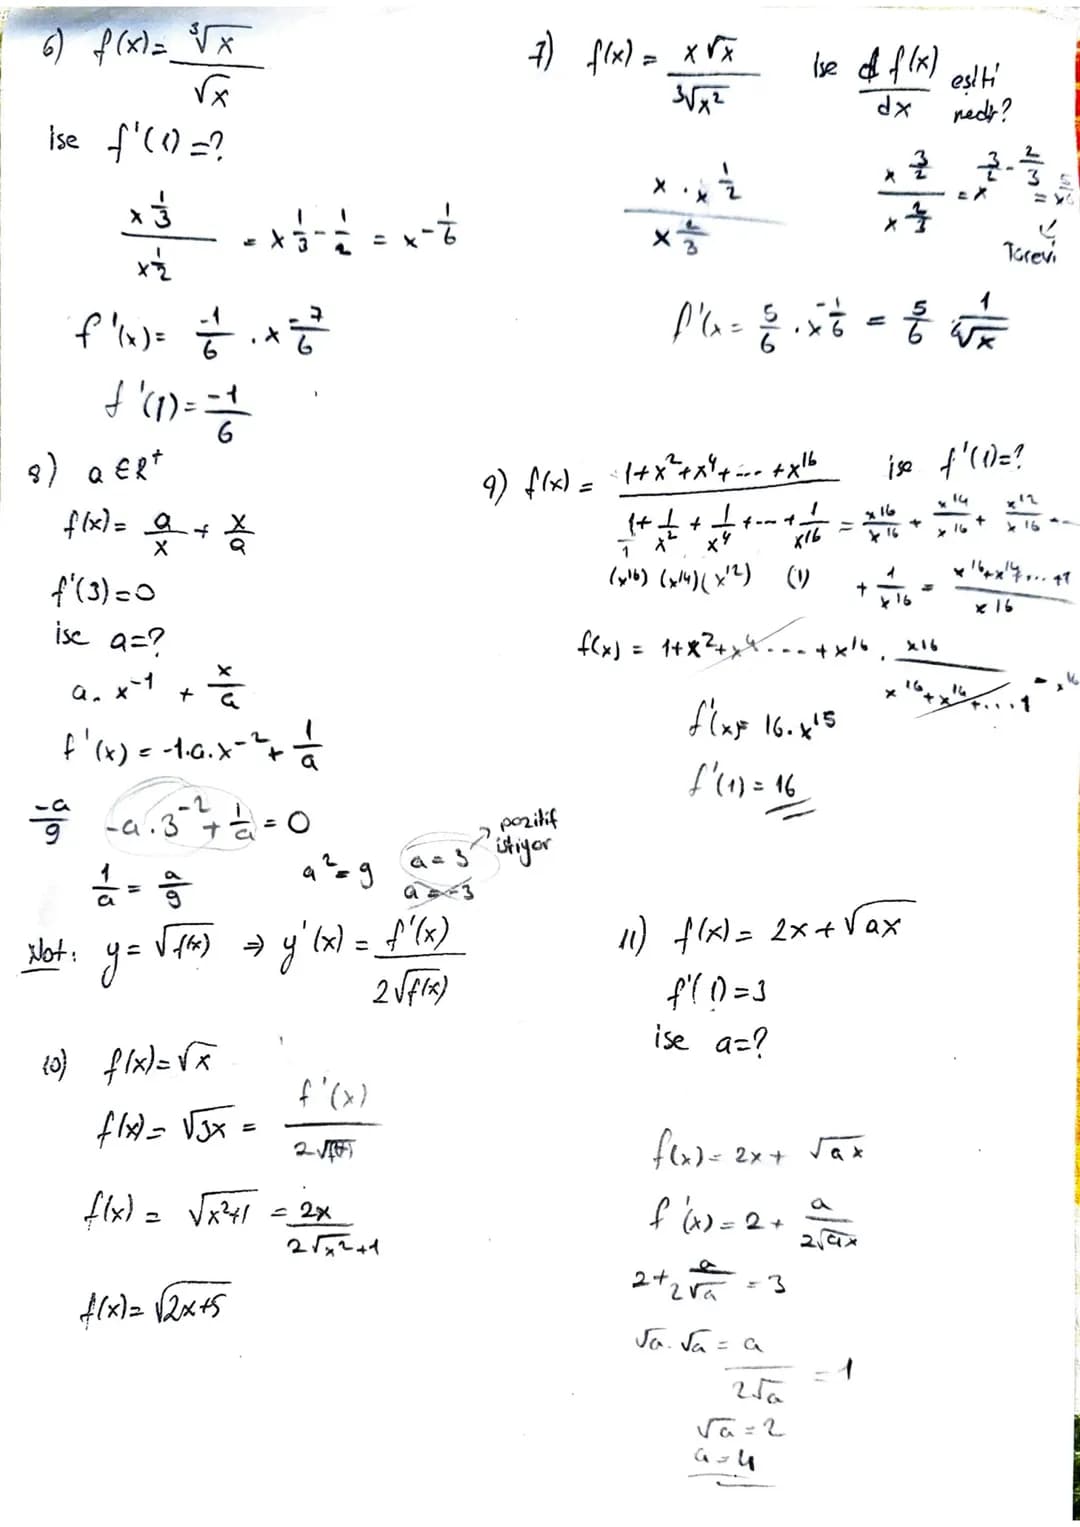 6) f(x) = ∛x / √x
ise f'(1) = ?
x^(1/3) / x^(1/2) = x^(1/3 - 1/2) = x^(-1/6)
f'(x) = -1/6 . x^(-7/6)
f'(1) = -1/6
7) f(x) = x√x / ∛x² ise d f(x) / dx eşiti nedir?
x . x^(1/2) / x^(2/3)
x^(3/2) / x^(2/3) = x^(3/2 - 2/3) = x^(5/6)
Türevi
f'(x = 5/6 . x^(-1/6) = 5/6 1/⁶√x
8) a ∈ R⁺
f(x) = a/x + x/a
f'(3) = 0
ise a = ?
a . x⁻¹ + x/a
f'(x) = -1.a.x⁻² + 1/a
-a/9 -a . 3⁻² + 1/a = 0
1/a = a/9 a² = 9 a = 3 pozitif istiyor
a = -3
9) f(x) = 1+x²+x⁴+ --- +x¹⁶ / 1/1 + 1/x² + 1/x⁴ + --- + 1/x¹⁶ ise f'(1) = ?
(x¹⁶) (x¹⁴) (x¹²) (1)
= x¹⁶/x¹⁶ + x¹⁴/x¹⁶ + x¹²/x¹⁶ ---
+ 1/x¹⁶ = x¹⁶+x¹⁴+ ... +1 / x16
f(x) = 1+x²+x⁴ ---- +x¹⁶ . x16 / x¹⁶+x¹⁴+....1 = x¹⁶
f'(x) = 16.x¹⁵
f'(1) = 16
Not: y = √f(x) ⇒ y'(x) = f'(x) / 2√f(x)
10) f(x) = √x
f(x) = √3x = f'(x) / 2√f(x)
f(x) = √x²+1 = 2x / 2√x²+1
f(x) = √2x+5
11) f(x) = 2x + √ax
f'(1) = 3
ise a = ?
f(x) = 2x + √ax
f'(x) = 2 + a / 2√ax
2 + a / 2√a = 3
√a . √a = a / 2√a = 1
√a = 2
a = 4